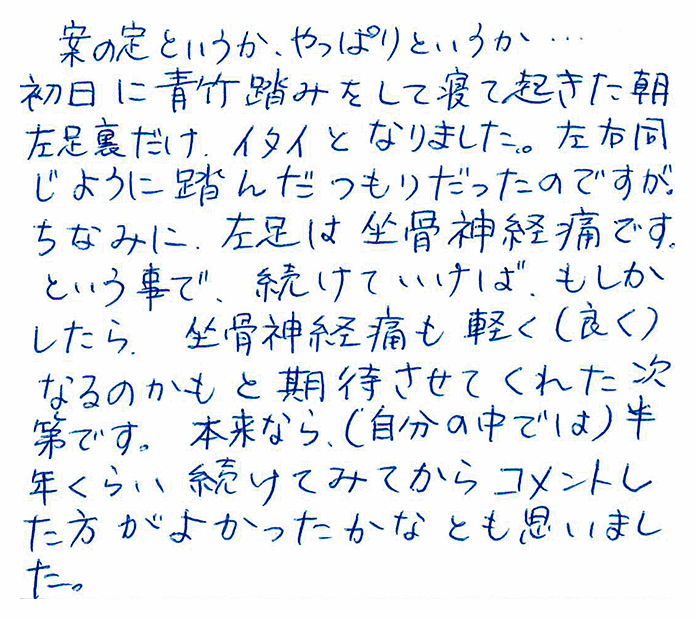 案の定というか、やっぱりというか…
初日に青竹踏みをして寝て起きた朝
左足裏だけ、イタイとなりました。左右同
じように踏んだつもりだったのですが。
ちなみに、左足は坐骨神経痛です。
という事で、続けていけば、もしか
したら、坐骨神経痛も軽く(良く)
なるのかもと期待させてくれた次
第です。本来なら、(自分の中では)半
年くらい続けてみてからコメントし
た方がよかったかなとも思いまし
た。